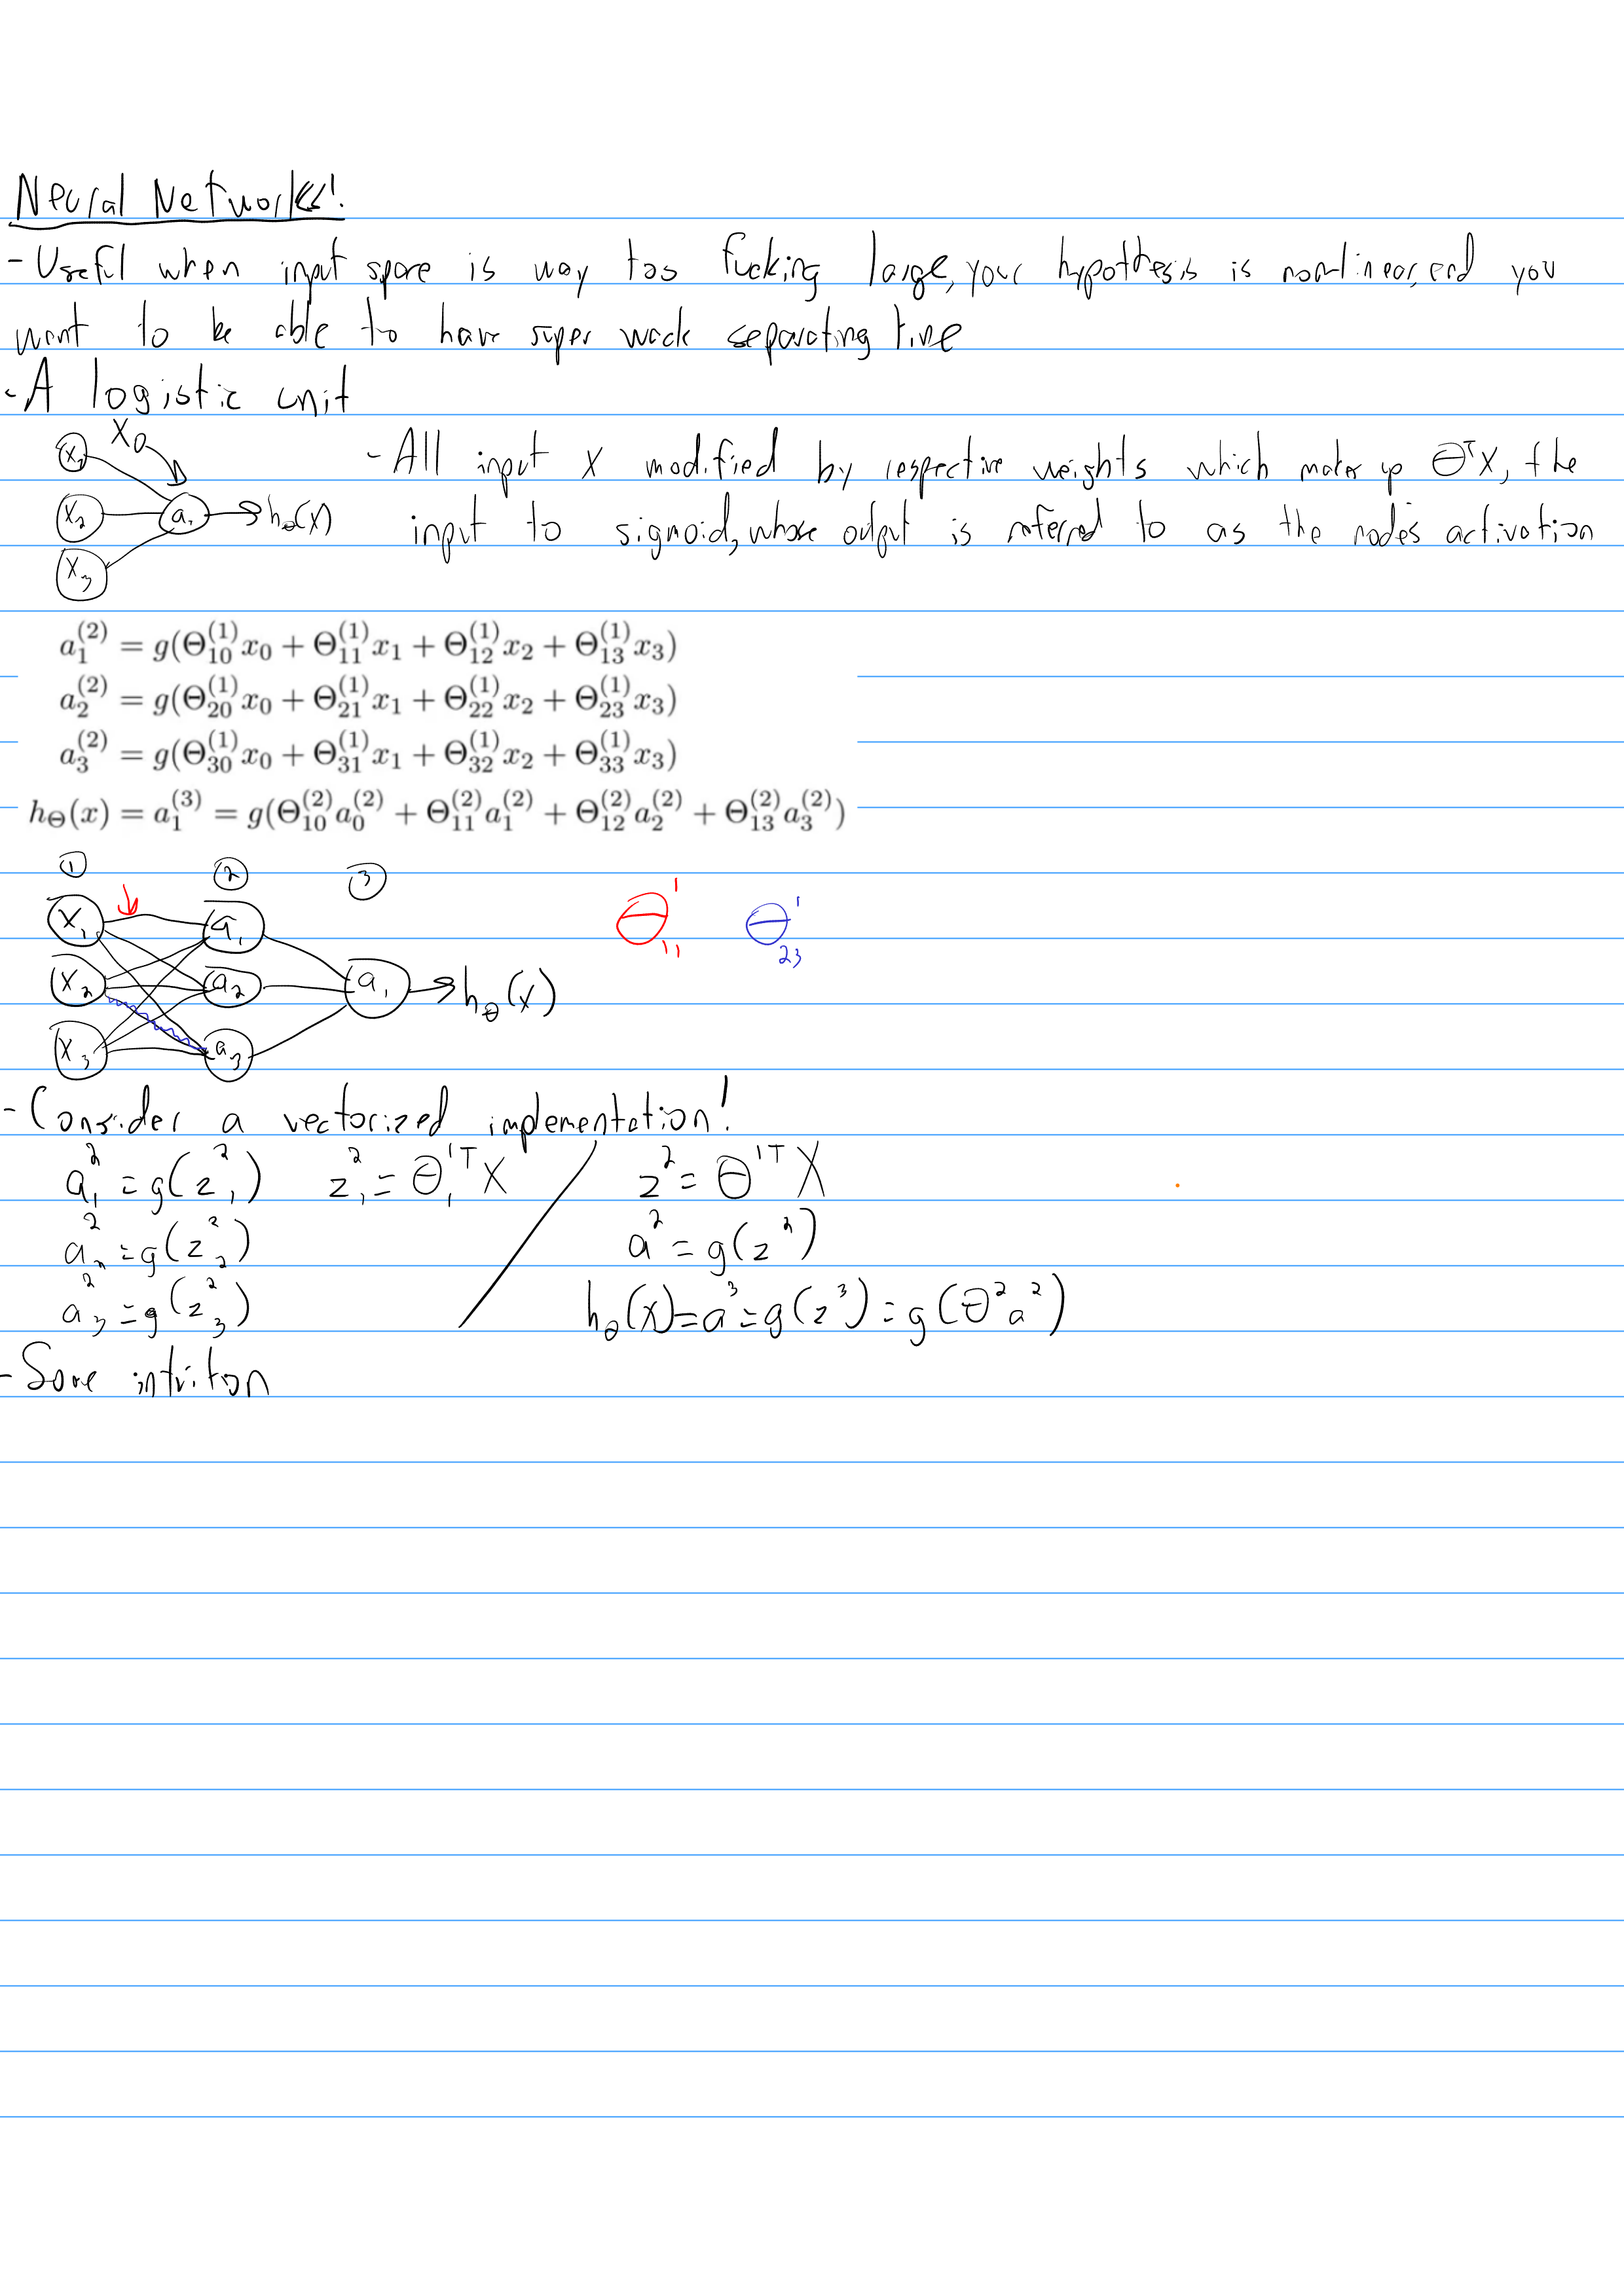 Neural Networks!
- Useful when input space is way too fucking large, your hypothesis is non-linear, and you
want to be able to have super wack separating line
- A logistic unit
x₁ x₀
- All input x modified by respective weights which makes up Θᵀx, the
x₂ a₁ → hθ(x)
input to sigmoid, whose output is referred to as the nodes activation
x₃
a₁⁽²⁾ = g(Θ₁₀⁽¹⁾x₀ + Θ₁₁⁽¹⁾x₁ + Θ₁₂⁽¹⁾x₂ + Θ₁₃⁽¹⁾x₃)
a₂⁽²⁾ = g(Θ₂₀⁽¹⁾x₀ + Θ₂₁⁽¹⁾x₁ + Θ₂₂⁽¹⁾x₂ + Θ₂₃⁽¹⁾x₃)
a₃⁽²⁾ = g(Θ₃₀⁽¹⁾x₀ + Θ₃₁⁽¹⁾x₁ + Θ₃₂⁽¹⁾x₂ + Θ₃₃⁽¹⁾x₃)
h_Θ(x) = a₁⁽³⁾ = g(Θ₁₀⁽²⁾a₀⁽²⁾ + Θ₁₁⁽²⁾a₁⁽²⁾ + Θ₁₂⁽²⁾a₂⁽²⁾ + Θ₁₃⁽²⁾a₃⁽²⁾)
① ② ③
x₁ a₁ Θ₁₁¹ Θ₂₃¹
x₂ a₂ a₁ → hθ(x)
x₃ a₃
- Consider a vectorized implementation!
a₁² = g(z₁²) z₁² = Θ₁¹ᵀX / z² = Θ¹ᵀX
a₂² = g(z₂²) a² = g(z²)
a₃² = g(z₃²) hθ(x) = a³ = g(z³) = g(Θ²a²)
- Some intuition